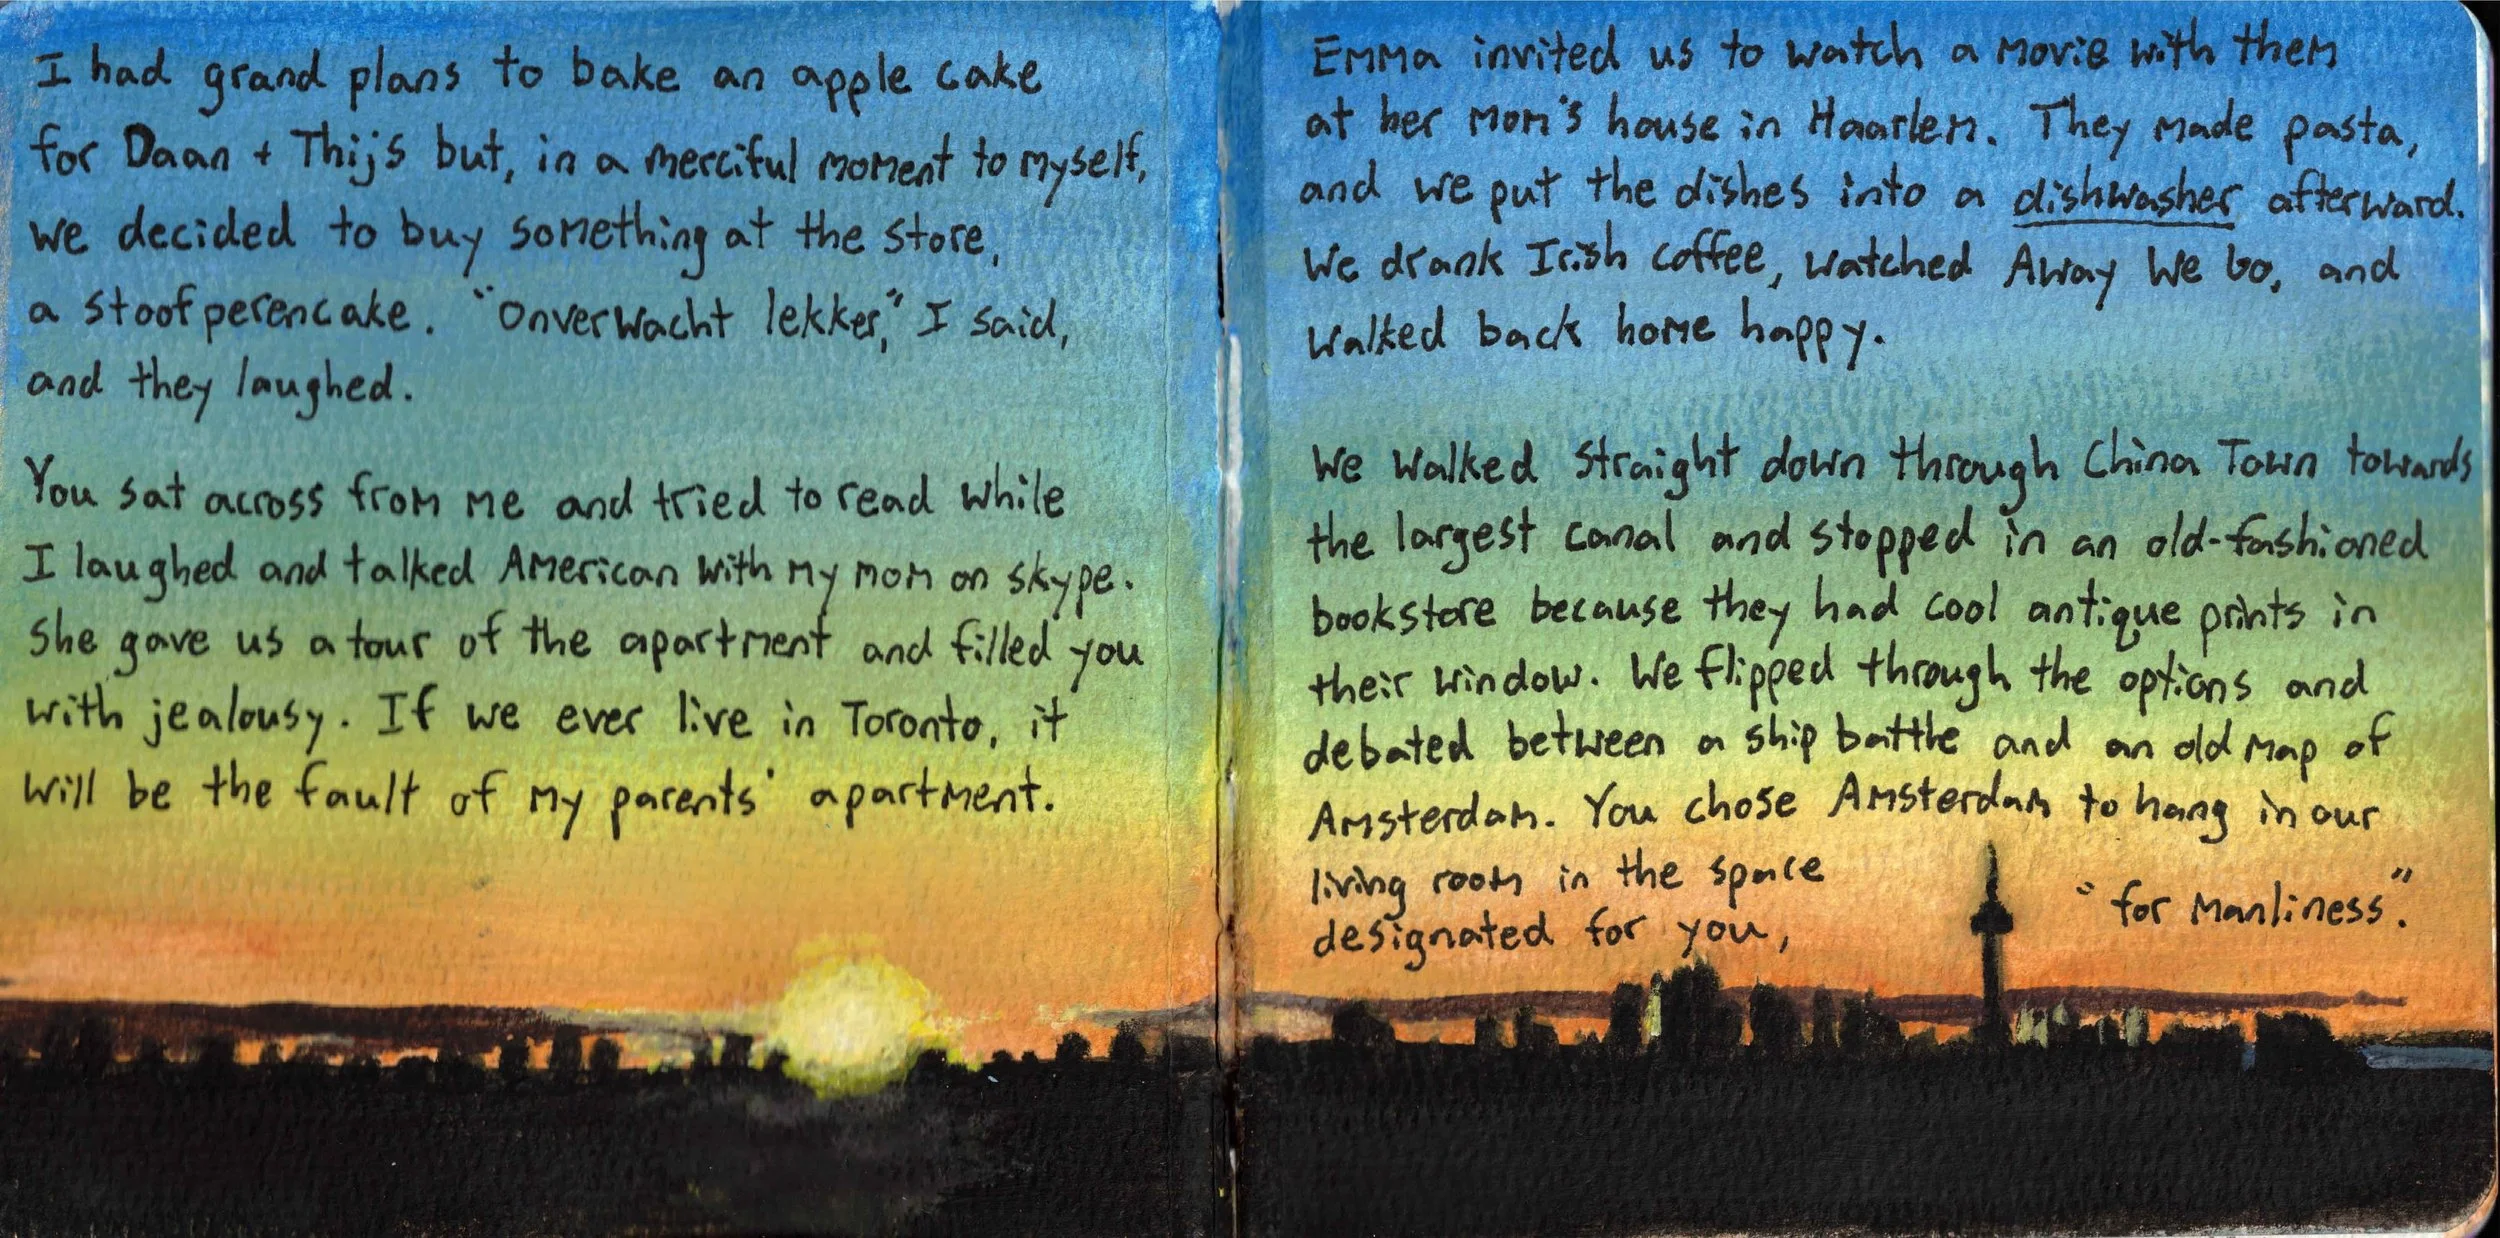 I had grand plans to bake an apple cake
for Daan + Thijs but, in a merciful moment to myself,
we decided to buy something at the store,
a stoofperencake. "Onverwacht lekker," I said,
and they laughed.
You sat across from me and tried to read while
I laughed and talked American with my mom on skype.
She gave us a tour of the apartment and filled you
with jealousy. If we ever live in Toronto, it
will be the fault of my parents' apartment.
Emma invited us to watch a movie with them
at her mom's house in Haarlem. They made pasta,
and we put the dishes into a dishwasher afterward.
We drank Irish coffee, watched Away We Go, and
walked back home happy.
We walked straight down through China Town towards
the largest canal and stopped in an old-fashioned
bookstore because they had cool antique prints in
their window. We flipped through the options and
debated between a ship battle and an old map of
Amsterdam. You chose Amsterdam to hang in our
living room in the space
designated for you,
"for manliness".